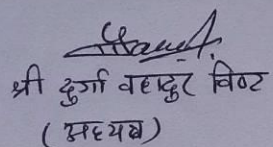 श्री दुर्गा बहादुर विष्ट
(अध्यक्ष)